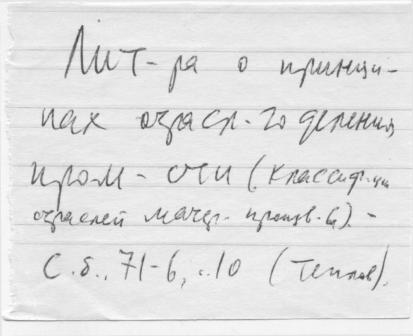 Лит-ра о принци-
пах отрасл-го деления
пром-сти (классиф-ии
отраслей матер. произв-ва). -
С.б., 71-6, с.10 (Теплов).